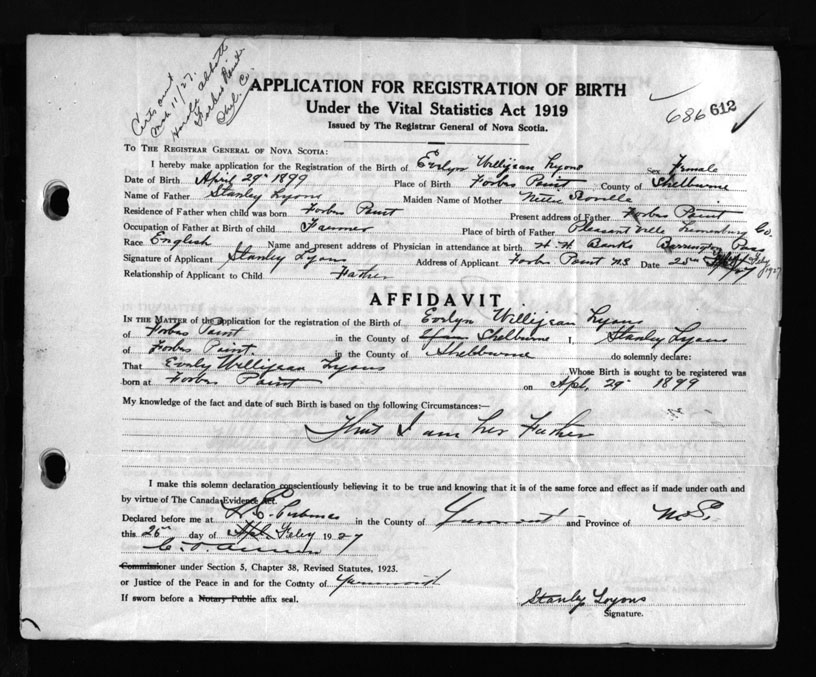 Certs and
Mch 11/27.
Harold Abbott
Forbes Point
Shel. Co.
APPLICATION FOR REGISTRATION OF BIRTH
Under the Vital Statistics Act 1919
Issued by The Registrar General of Nova Scotia.
686 612
TO THE REGISTRAR GENERAL OF NOVA SCOTIA:
I hereby make application for the Registration of the Birth of Evelyn Willijean Lyons Sex Female
Date of Birth April 29th 1899 Place of Birth Forbes Point County of Shelburne
Name of Father Stanley Lyons Maiden Name of Mother Nettie
Residence of Father when child was born Forbes Point Present address of Father Forbes Point
Occupation of Father at Birth of child Farmer Place of birth of Father Pleasant ville Lunenburg Co.
Race English Name and present address of Physician in attendance at birth H. H. Banks Barrington Pass
Signature of Applicant Stanley Lyons Address of Applicant Forbes Point N.S Date 25th Feby 1927
Relationship of Applicant to Child Father
AFFIDAVIT
IN THE MATTER of the Application for the registration of the Birth of Evelyn Willijean Lyons
of Forbes Point in the County of Shelburne I, Stanley Lyons
of Forbes Point in the County of Shelburne do solemnly declare:
That Evely Willijean Lyons Whose Birth is sought to be registered was
born at Forbes Point on Apl, 29th 1899
My knowledge of the fact and date of such Birth is based on the following Circumstances:—
That I am her Father
I make this solemn declaration conscientiously believing it to be true and knowing that it is of the same force and effect as if made under oath and
by virtue of The Canada Evidence Act.
Declared before me at in the County of Yarmouth and Province of N.S,
this 26th day of Feby 1927
Commissioner under Section 5, Chapter 38, Revised Statutes, 1923.
or Justice of the Peace in and for the County of Yarmouth
If sworn before a Notary Public affix seal.
Stanley Loyons
Signature.